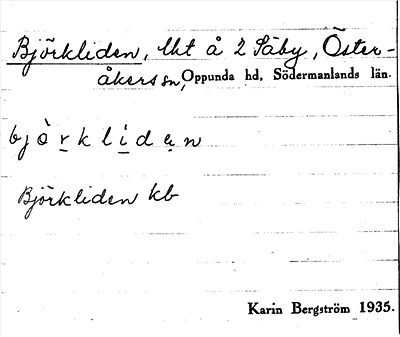 Björkliden, lht å 2 Säby, Öster-
åkers sn, Oppunda hd, Södermanlands län.
bjö̀r̲k li̲dạn
Björkliden kb
Karin Bergström 1935.